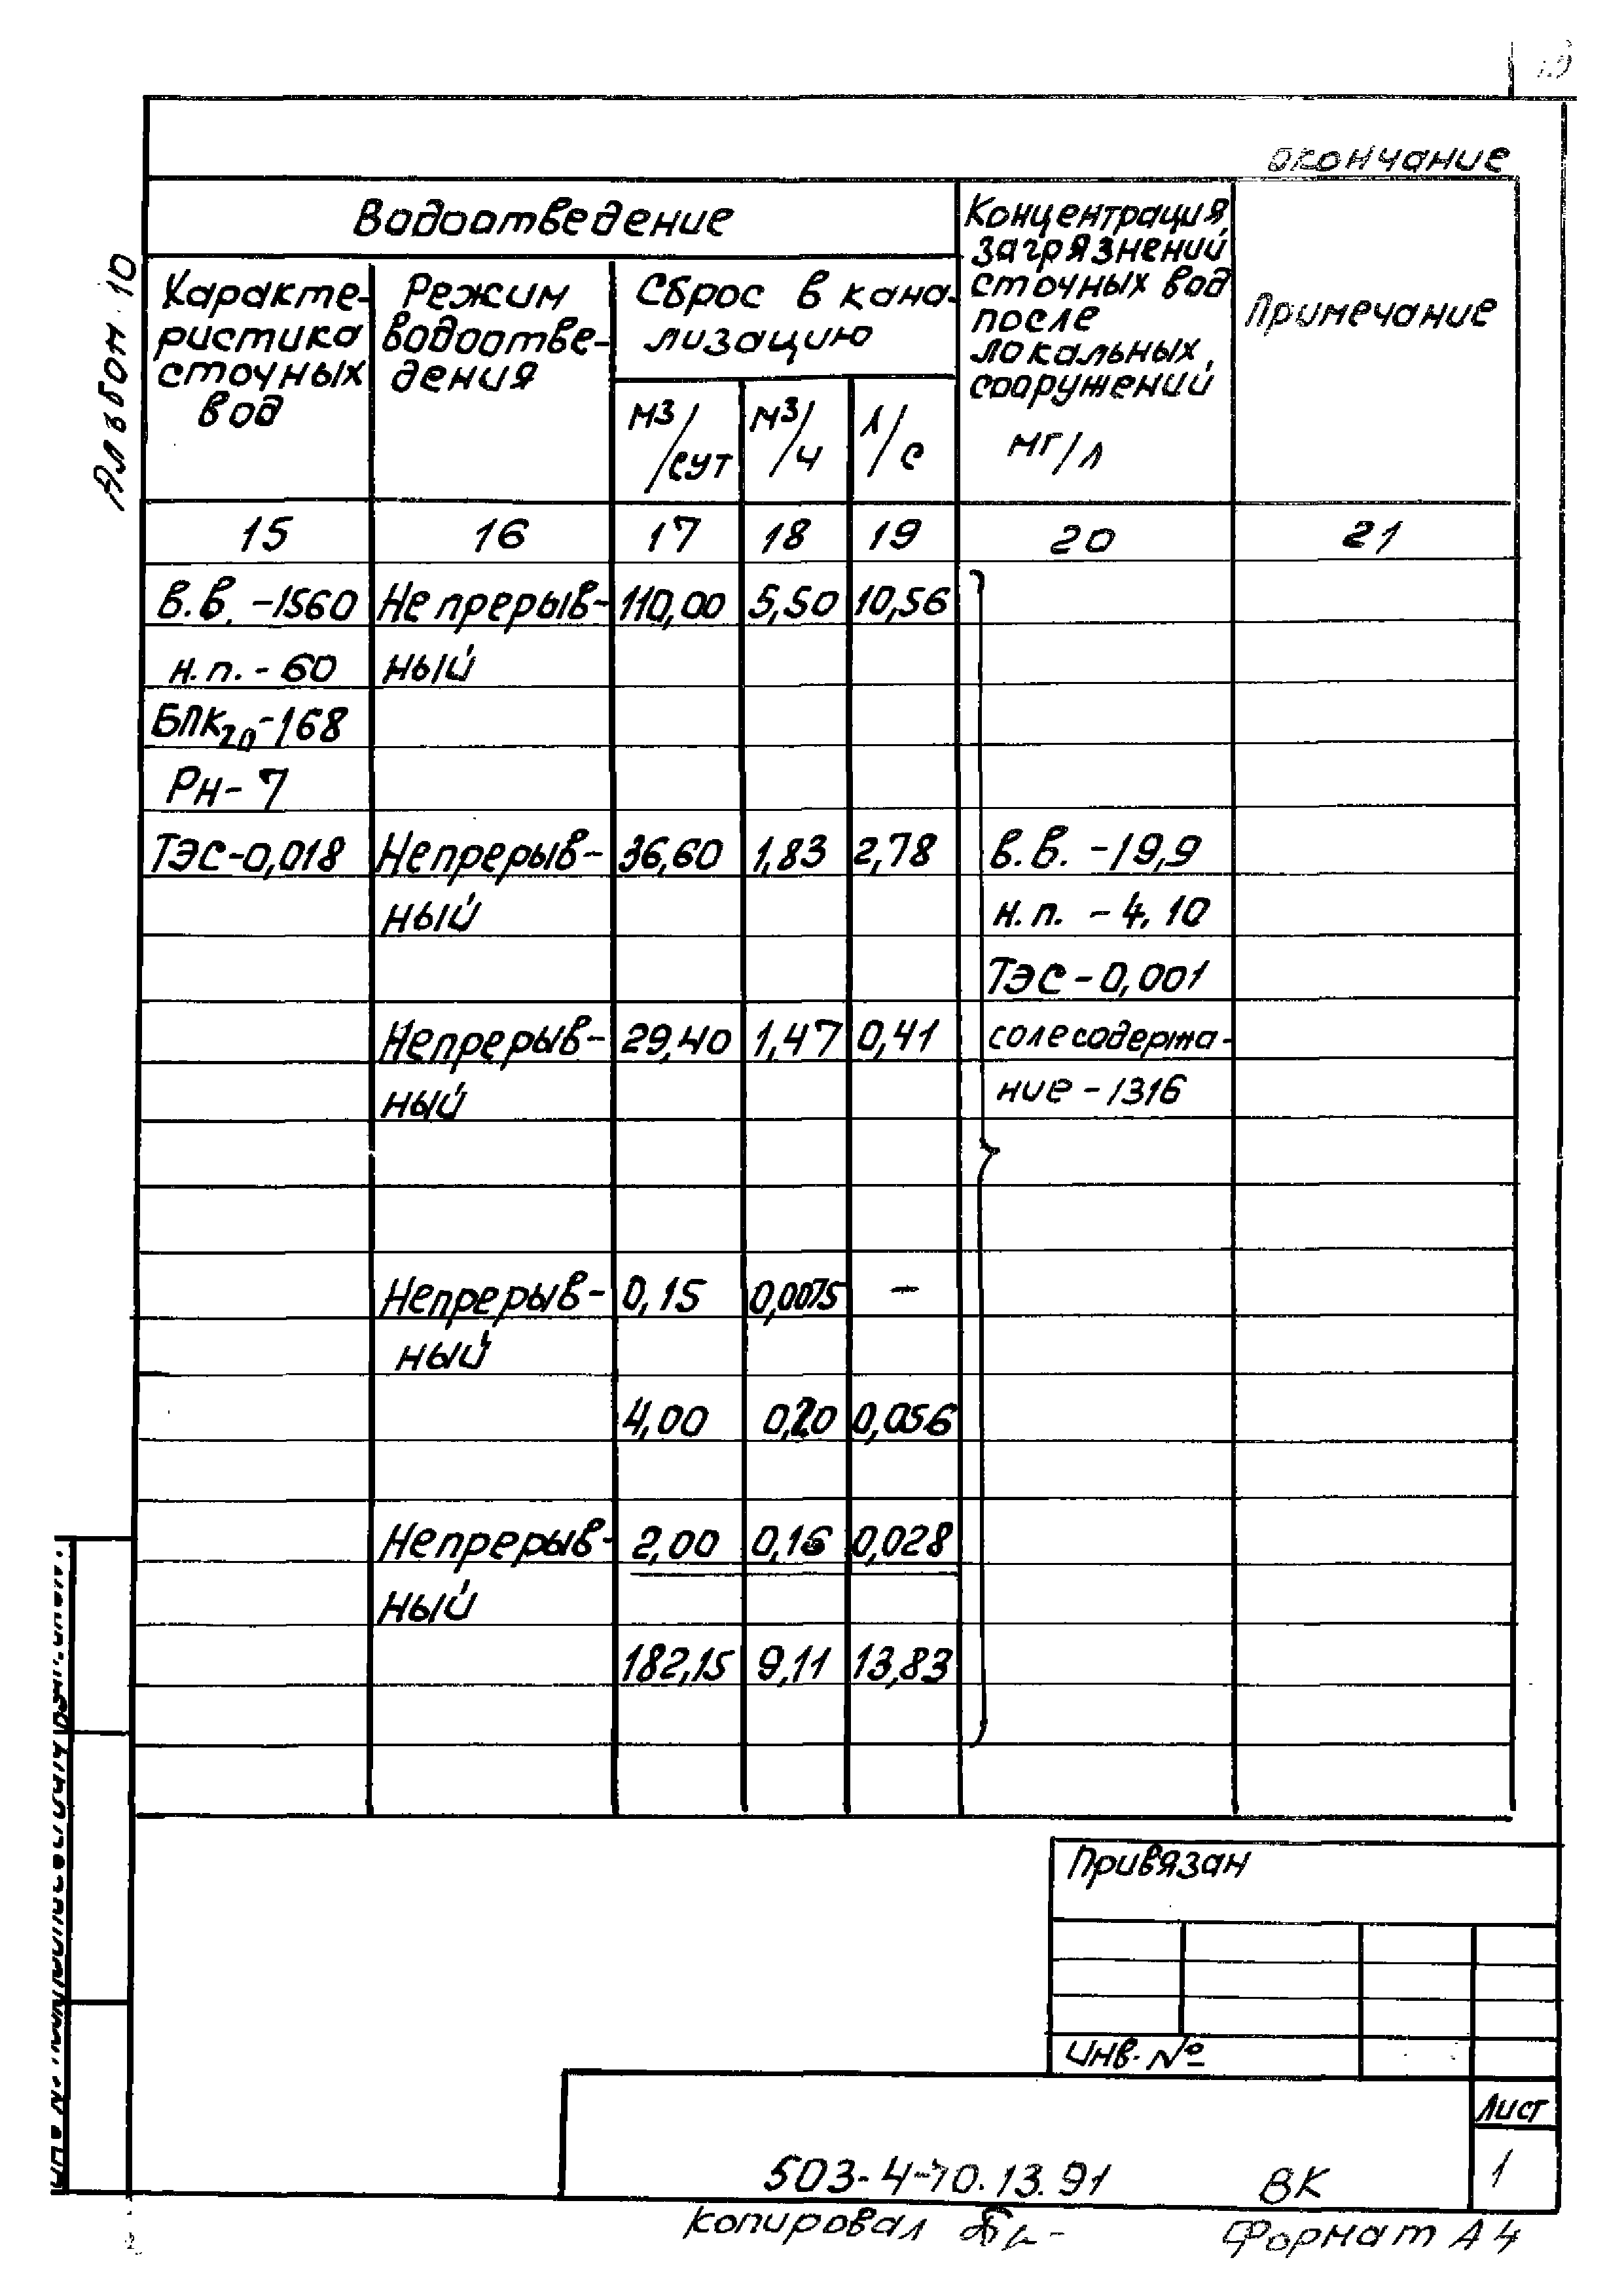 окончание
Альбом 10
Водоотведение
Концентрация загрязнений сточных вод после локальных сооружений мг/л
Примечание
Характе-
ристика
сточных
вод
Режим
водоотве-
дения
Сброс в кана-
лизацию
м3/сут м3/ч л/с
15 16 17 18 19 20 21
в.в. -1560 Непрерыв- 110,00 5,50 10,56
н.п. - 60 ный
БПК20-168
Рн- 7
ТЭС-0,018 Непрерыв- 36,60 1,83 2,78 в.в. -19,9
ный н.п. - 4,10
ТЭС-0,001
Непрерыв- 29,40 1,47 0,41 солесодержа-
ный ние - 1316
Непрерыв- 0,15 0,0075 -
ный
4,00 0,20 0,056
Непрерыв- 2,00 0,16 0,028
ный
182,15 9,11 13,83
Привязан
Инв. №
Лист
503-4-70.13.91 ВК 1
копировал Формат А4